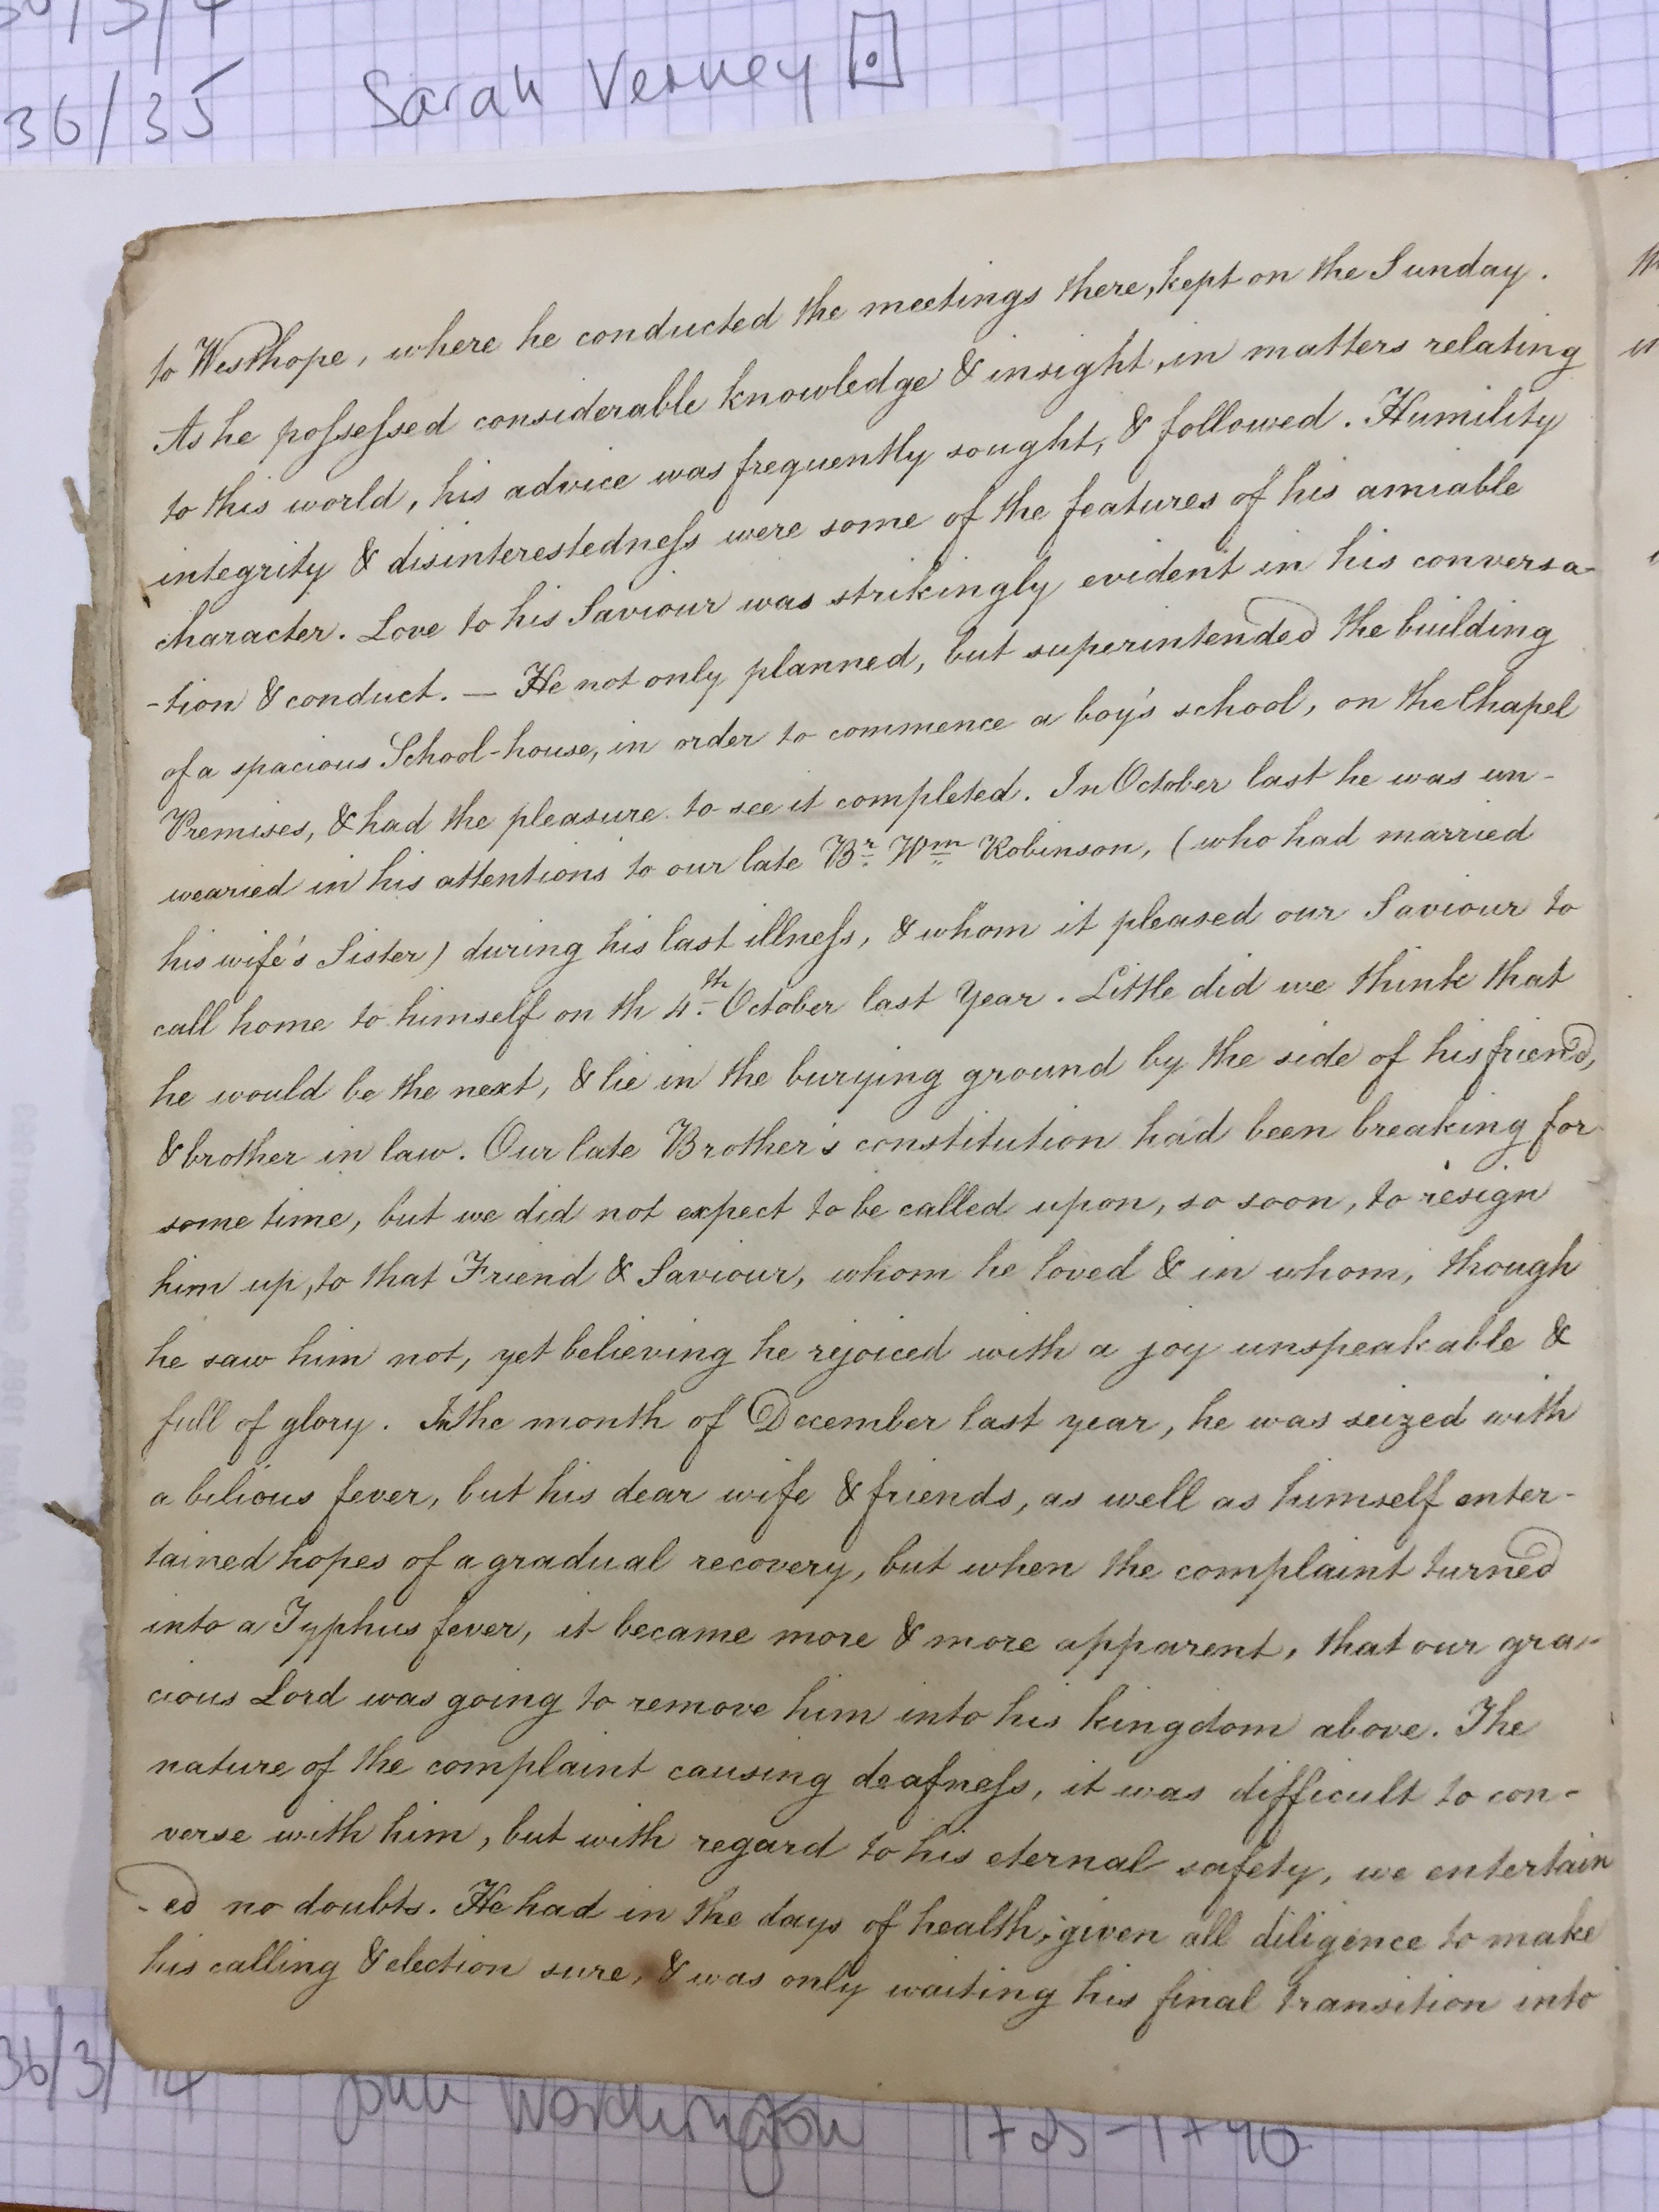 36/35 Sarah Verney
to Westhope, where he conducted the meetings there, kept on the Sunday.
As he poſseſsed considerable knowledge & insight, in matters relating
to this world, his advice was frequently sought, & followed. Humility
integrity & disinterestedneſs were some of the features of his amiable
character. Love to his Saviour was strikingly evident in his conversa-
-tion & conduct. — He not only planned, but superintended the building
of a spacious School-house, in order to commence a boy's school, on the Chapel
Premises, & had the pleasure to see it completed. In October last he was un-
wearied in his attentions to our late Br. Wm Robinson, (who had married
his wife's Sister) during his last illneſs, & whom it pleased our Saviour to
call home to himself on th 4th October last Year. Little did we think that
he would be the next, & lie in the burying ground by the side of his friend,
& brother in law. Our late Brother's constitution had been breaking for
some time, but we did not expect to be called upon, so soon, to resign
him up, to that Friend & Saviour, whom he loved & in whom, though
he saw him not, yet believing he rejoiced with a joy unspeakable &
full of glory. In the month of December last year, he was seized with
a bilious fever, but his dear wife & friends, as well as himself enter-
tained hopes of a gradual recovery, but when the complaint turned
into a Typhus fever, it became more & more apparent, that our gra-
cious Lord was going to remove him into his kingdom above. The
nature of the complaint causing deafneſs, it was difficult to con-
verse with him, but with regard to his eternal safety, we entertain
-ed no doubts. He had in the days of health, given all diligence to make
his calling & election sure, & was only waiting his final transition into
36/3/14 John Worthington 1725-1790